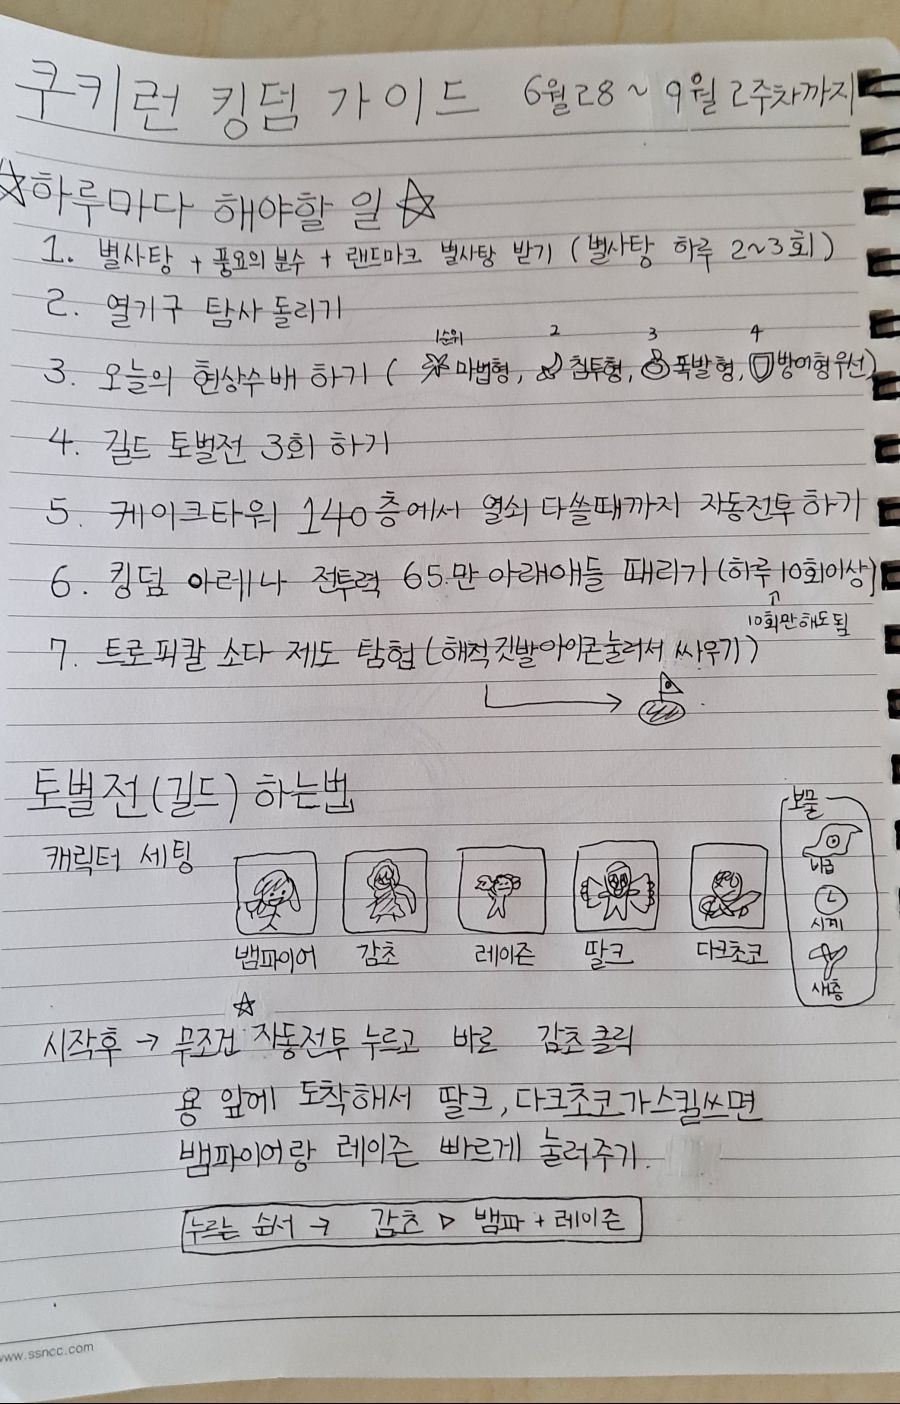 쿠키런 킹덤 가이드 6월28~9월 2주차까지
☆하루마다 해야할 일☆
1. 별사탕 + 풍요의 분수 + 랜드마크 별사탕 받기 (별사탕 하루 2~3회)
2. 열기구 탐사 돌리기
1순위 2 3 4
3. 오늘의 현상수배 하기 ( 마법형, 침투형, 폭발형, 방어형 우선)
4. 길드 토벌전 3회 하기
5. 케이크타워 140층에서 열쇠 다쓸때까지 자동전투 하기
6. 킹덤 아레나 전투력 65만 아래애들 때리기 (하루 10회이상)
10회만해도됨
7. 트로피칼 소다 제도 탐험 (해적깃발아이콘눌러서 싸우기)
토벌전(길드) 하는법
캐릭터 세팅
뱀파이어 감초 레이즌 딸크 다크초코
보물
시계
새총
시작후 → 무조건 자동전투 누르고 바로 감초 클릭
용 앞에 도착해서 딸크, 다크초코가 스킬쓰면
뱀파이어랑 레이즌 빠르게 눌러주기.
누르는 순서 → 감초 ▷ 뱀파 + 레이즌
www.ssncc.com